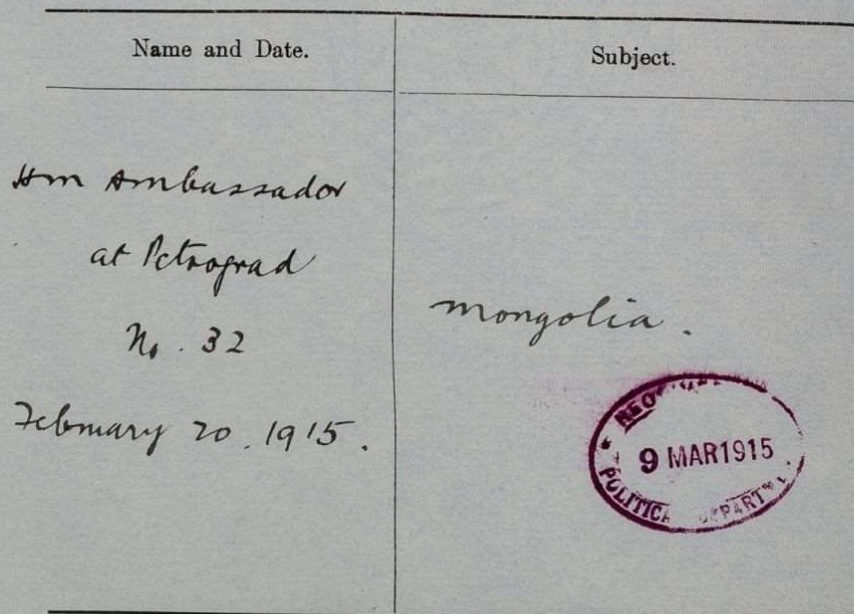 Name and Date.
Subject.
HM Ambassador
at Petrograd
No. 32
February 20. 1915.
Mongolia.
9 MAR 1915
POLITICAL DEPARTMENT